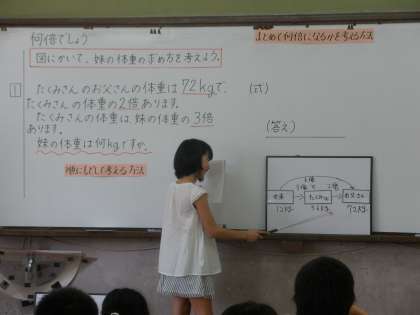 何倍でしょう
図にかいて、妹の体重の求め方を考えよう。
1
たくみさんのお父さんの体重は72kgで、
たくみさんの体重の2倍あります。
たくみさんの体重は、妹の体重の3倍
あります。
妹の体重は何kgですか。
順にもどして考える方法
まとめて何倍になるかを考える方法
(式)
(答え)
6倍
3倍
2倍
妹
たくみ
お父さん
12kg
36kg
72kg